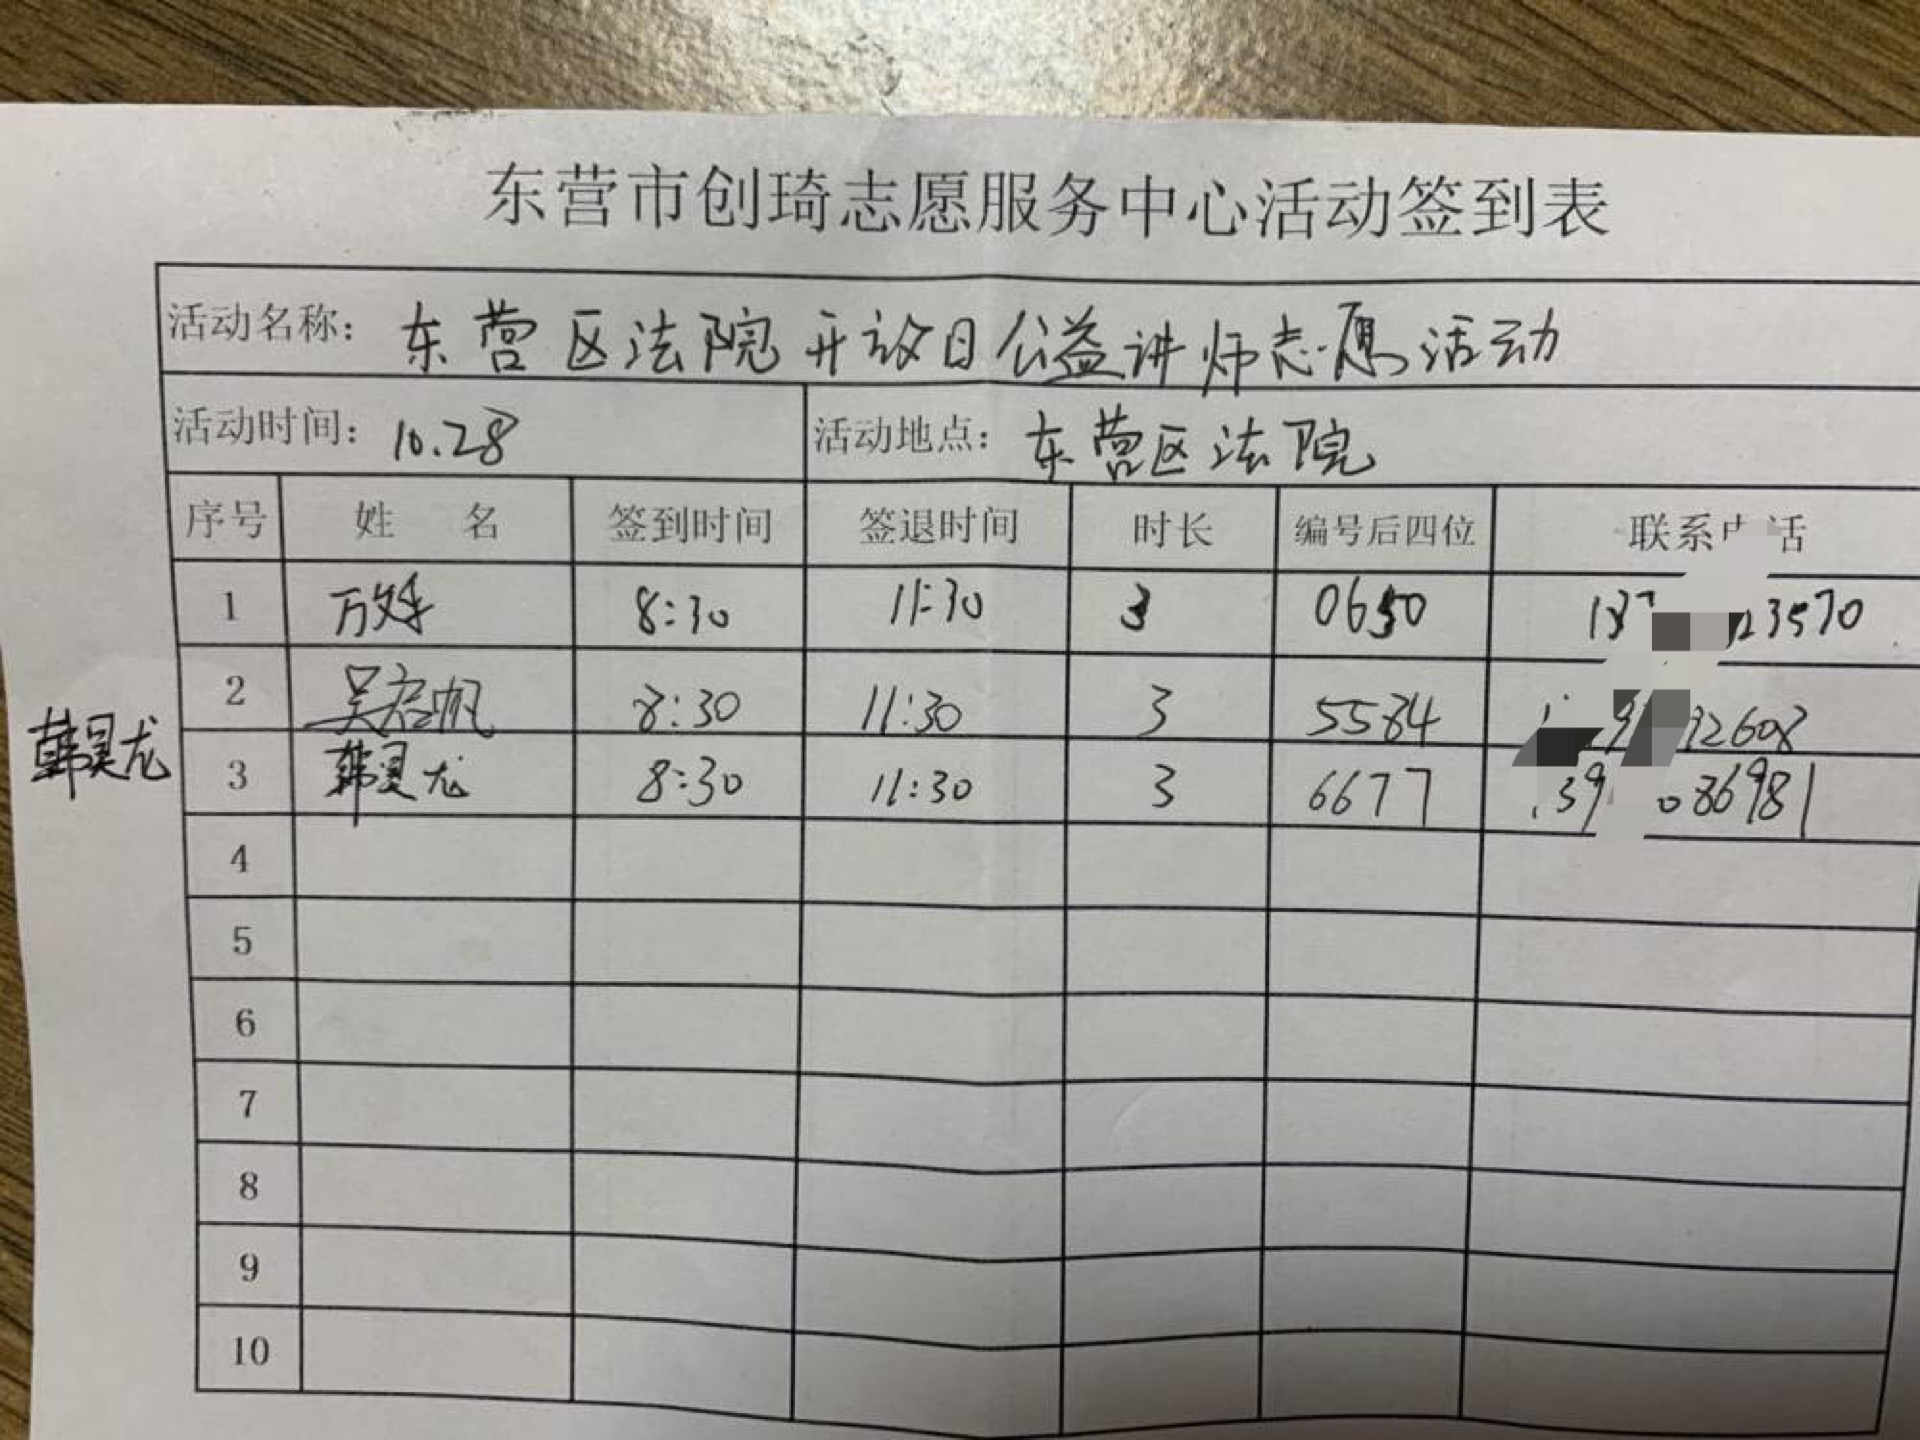 东营市创琦志愿服务中心活动签到表
活动名称：东营区法院开放日公益讲师志愿活动
活动时间：10.28 活动地点：东营区法院
序号 姓 名 签到时间 签退时间 时长 编号后四位 联系 话
1 8:30 11:30 3 0650 3570
2 吴启帆 8:30 11:30 3 5584 2608
3 韩昊龙 8:30 11:30 3 6677 86981
韩昊龙
4
5
6
7
8
9
10